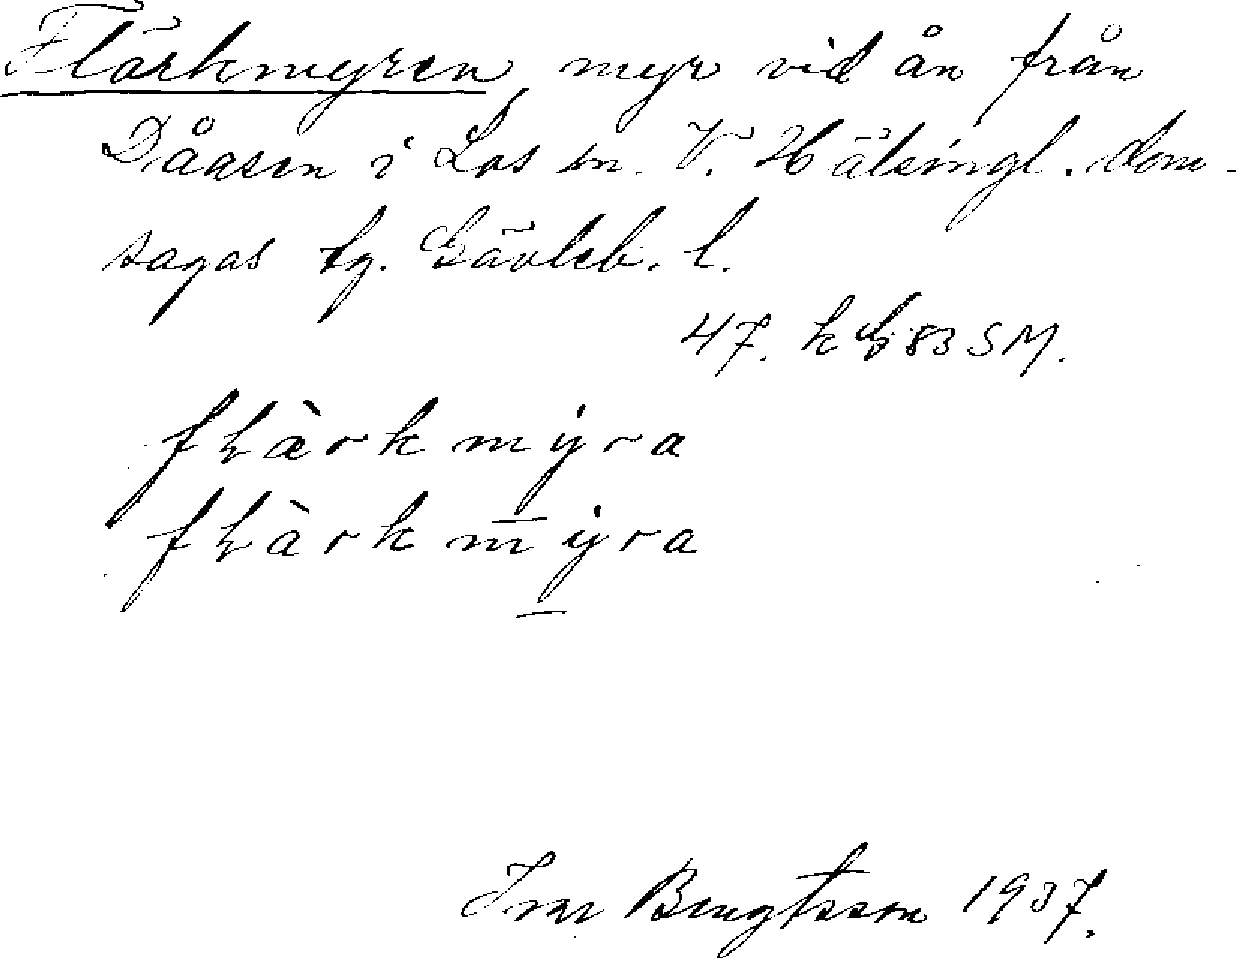 Flärkmyren, myr vid ån från
Dåasen i Los sn. V. Hälsingl. dom-
sagas tg. Gävleb. l.
47. k 83 SM.
fḷä̀rkmýra
fḷàrkmýra
Ivar Bengtsson 1937.